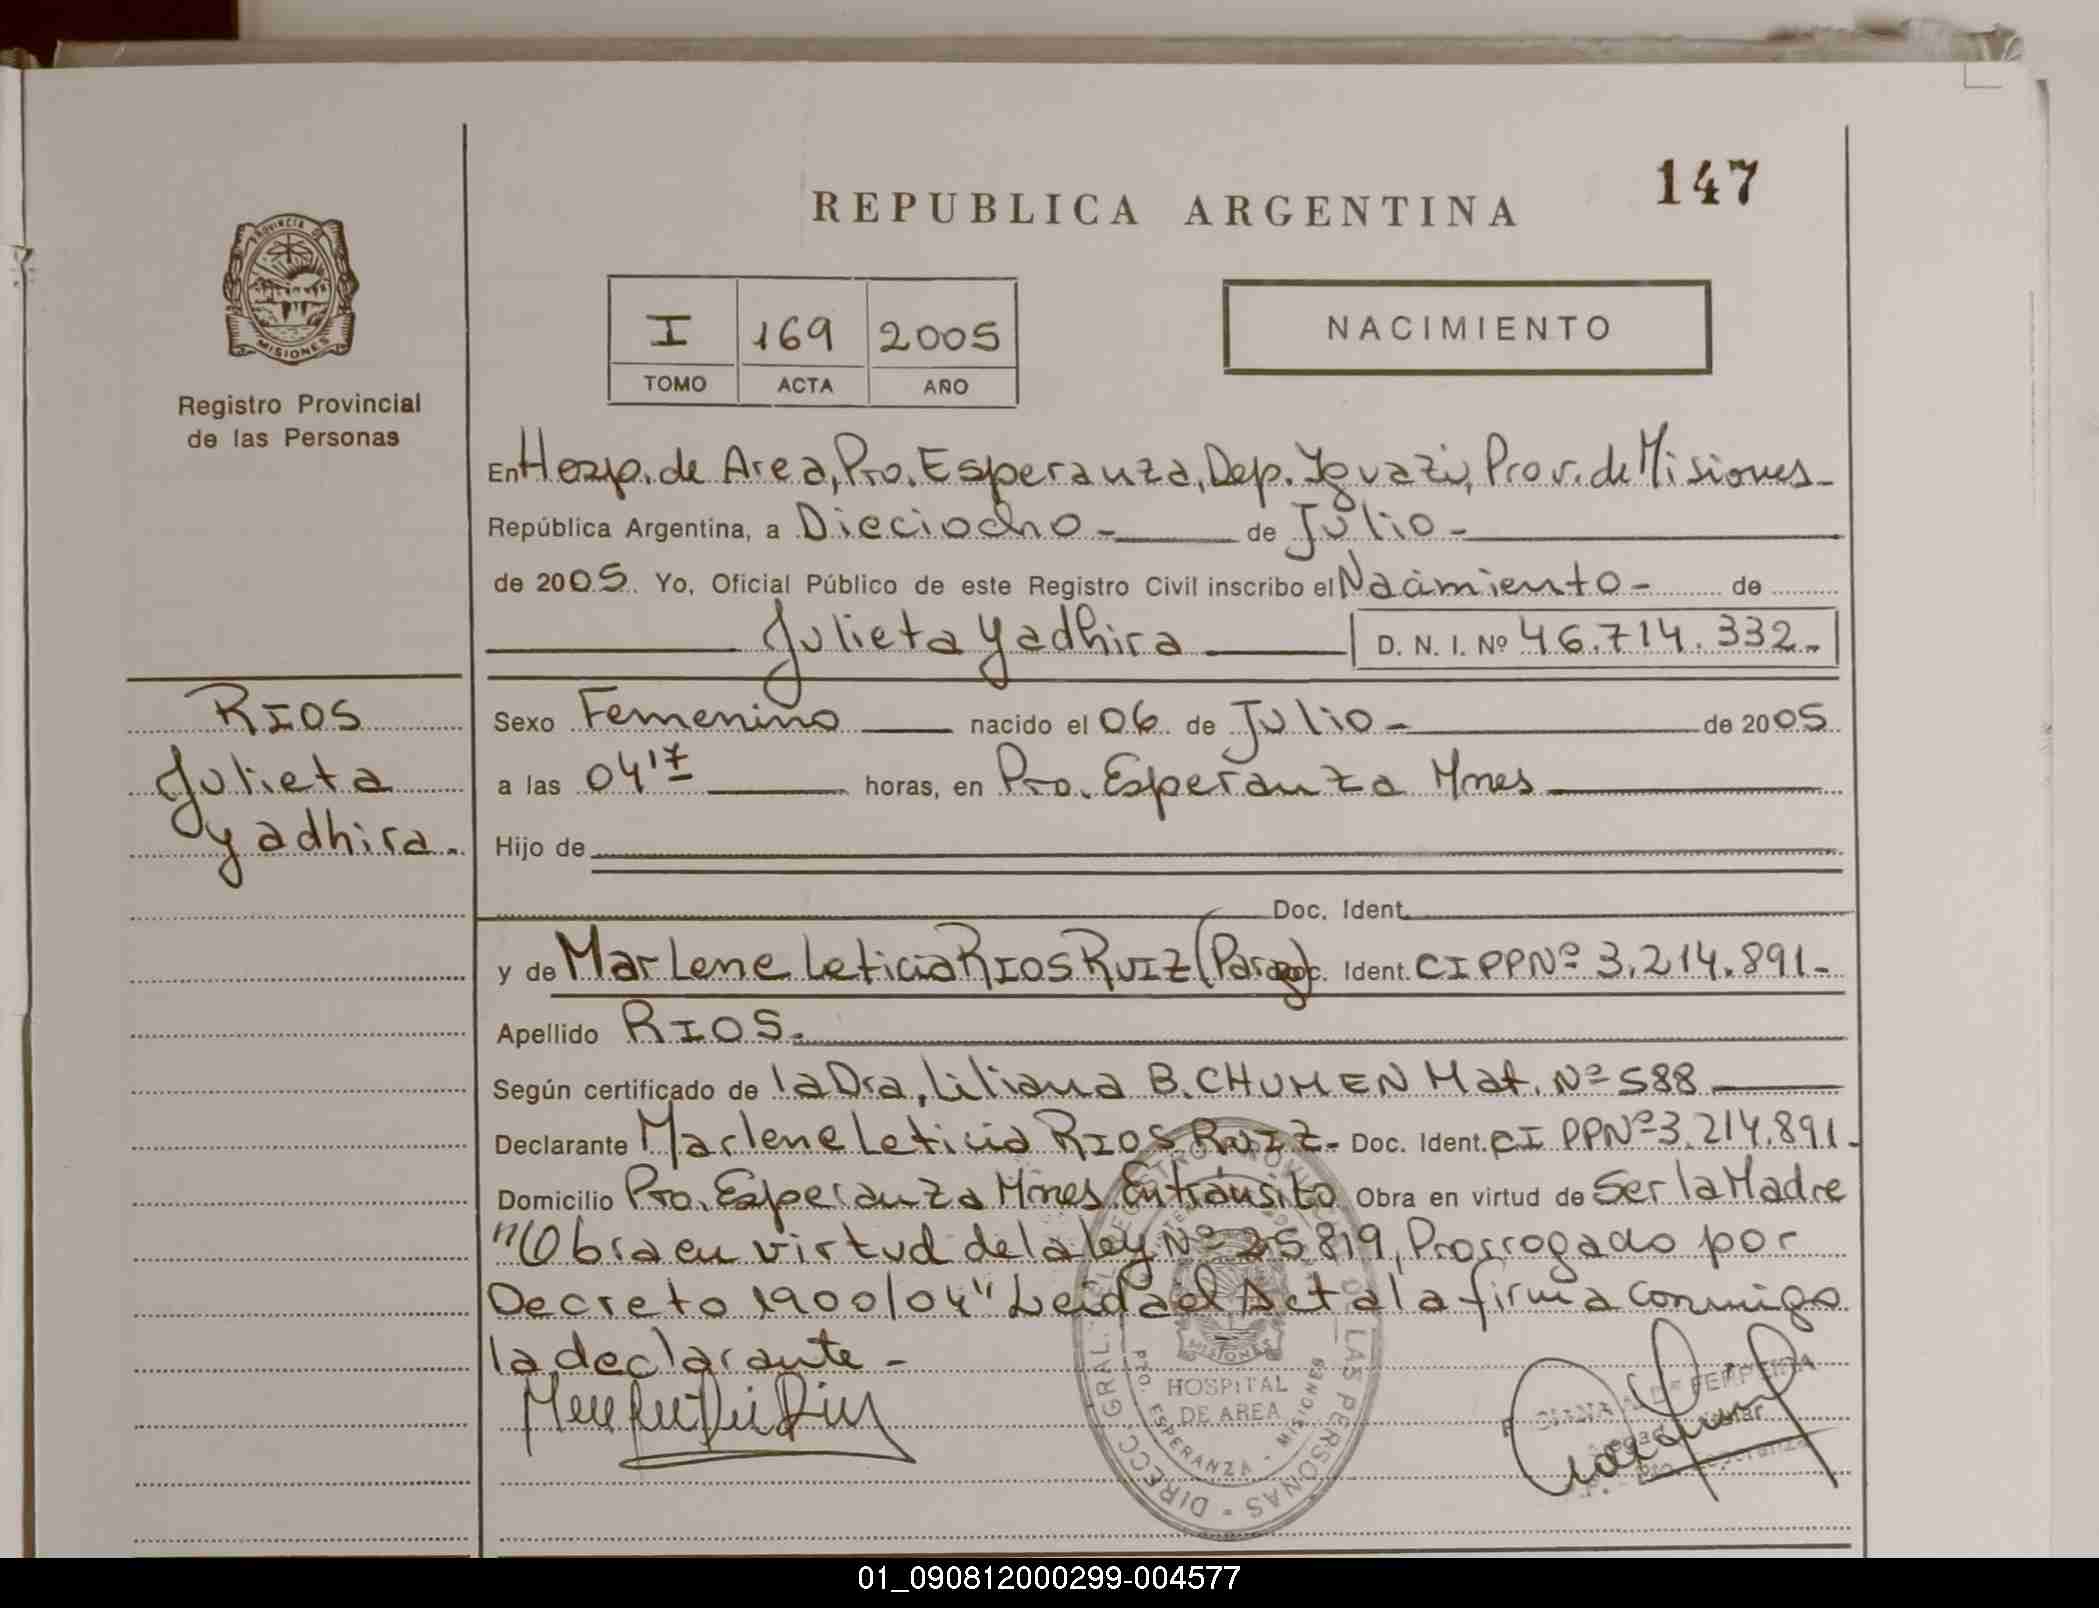 147
REPUBLICA ARGENTINA
PROVINCIA D
MISIONES
Registro Provincial
de las Personas
I 169 2005
TOMO ACTA AÑO
NACIMIENTO
En Hosp. de Area, Pto. Esperanza, Dep. Iguazú, Prov. de Misiones -
República Argentina, a Dieciocho - de Julio -
de 2005. Yo, Oficial Público de este Registro Civil inscribo el Nacimiento - de
Julieta Yadhira D. N. I. Nº 46.714.332.-
RIOS
Julieta
Yadhira.-
Sexo Femenino nacido el 06 de Julio - de 2005
a las 04'17 horas, en Pto. Esperanza Mnes
Hijo de
Doc. Ident.
y de Marlene Leticia RIOS RUIZ (Parag) Doc. Ident. CI PPNº 3.214.891.-
Apellido RIOS.
Según certificado de la Dra. Liliana B. CHUMEN Mat. Nº 588
Declarante Marlene Leticia RIOS RUIZ - Doc. Ident. CI PPNº 3.214.891.
Domicilio Pto. Esperanza Mnes. En tránsito Obra en virtud de Ser la Madre
"Obra en virtud de la ley Nº 25819, Prorrogado por
Decreto 1900/04" Leida el Acta la firma conmigo
la declarante -
HOSPITAL
DE AREA
PTO. ESPERANZA - MISIONES
DIRECC. GRAL. DEL REGISTRO PROVINCIAL DE LAS PERSONAS
01_090812000299-004577